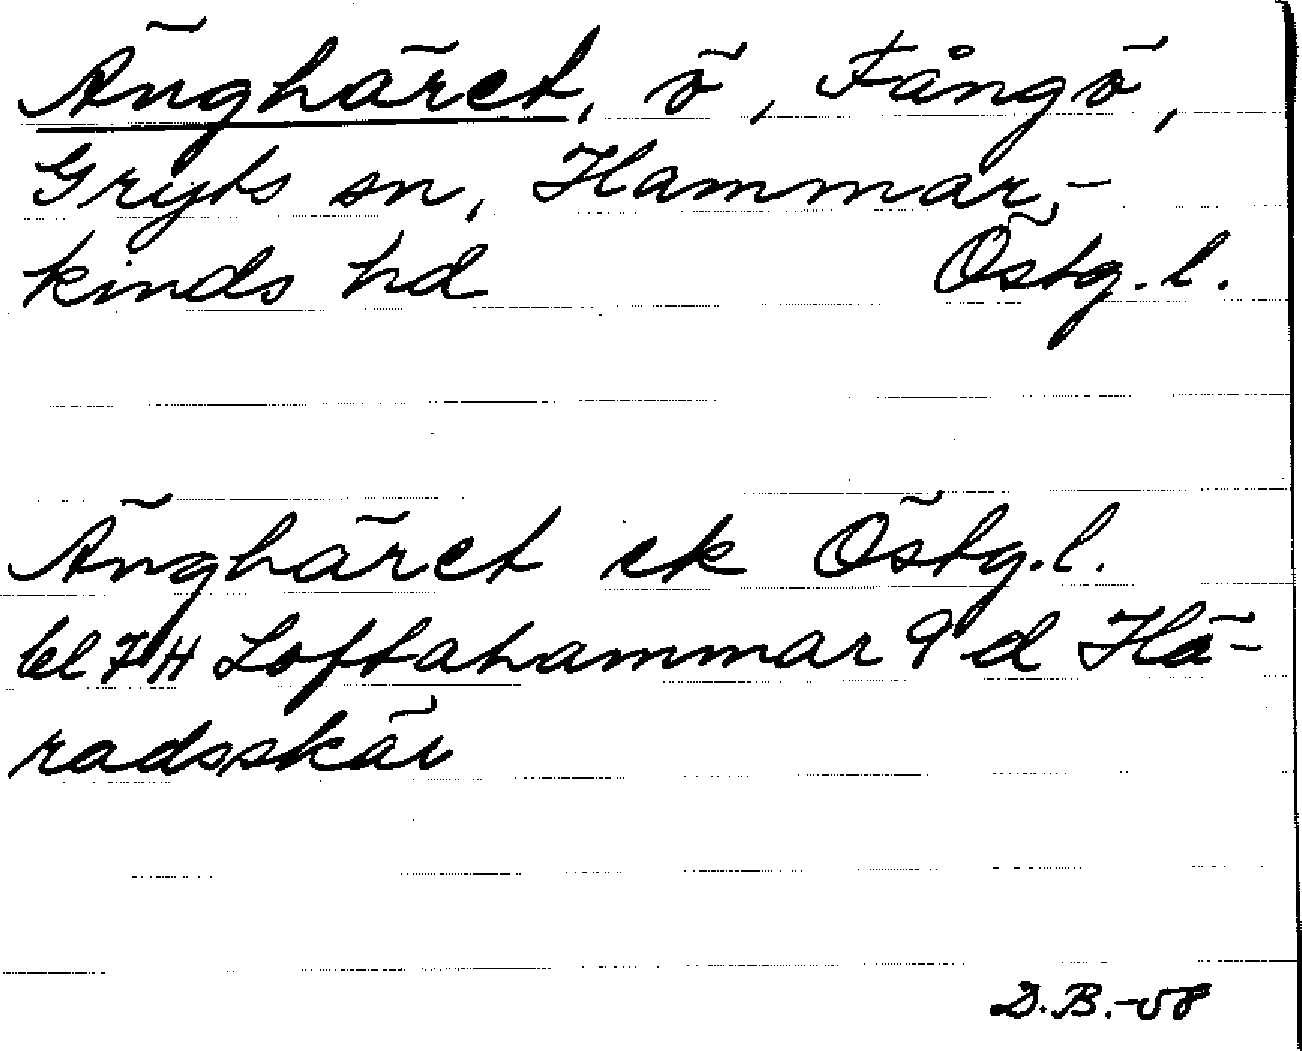 Änghäret, ö, Fångö,
Gryts sn, Hammar-
kinds hd Östg. l.
Änghäret ek Östg.l.
bl 7 H Loftahammar 9 d Hä-
radsskär
D.B.-58